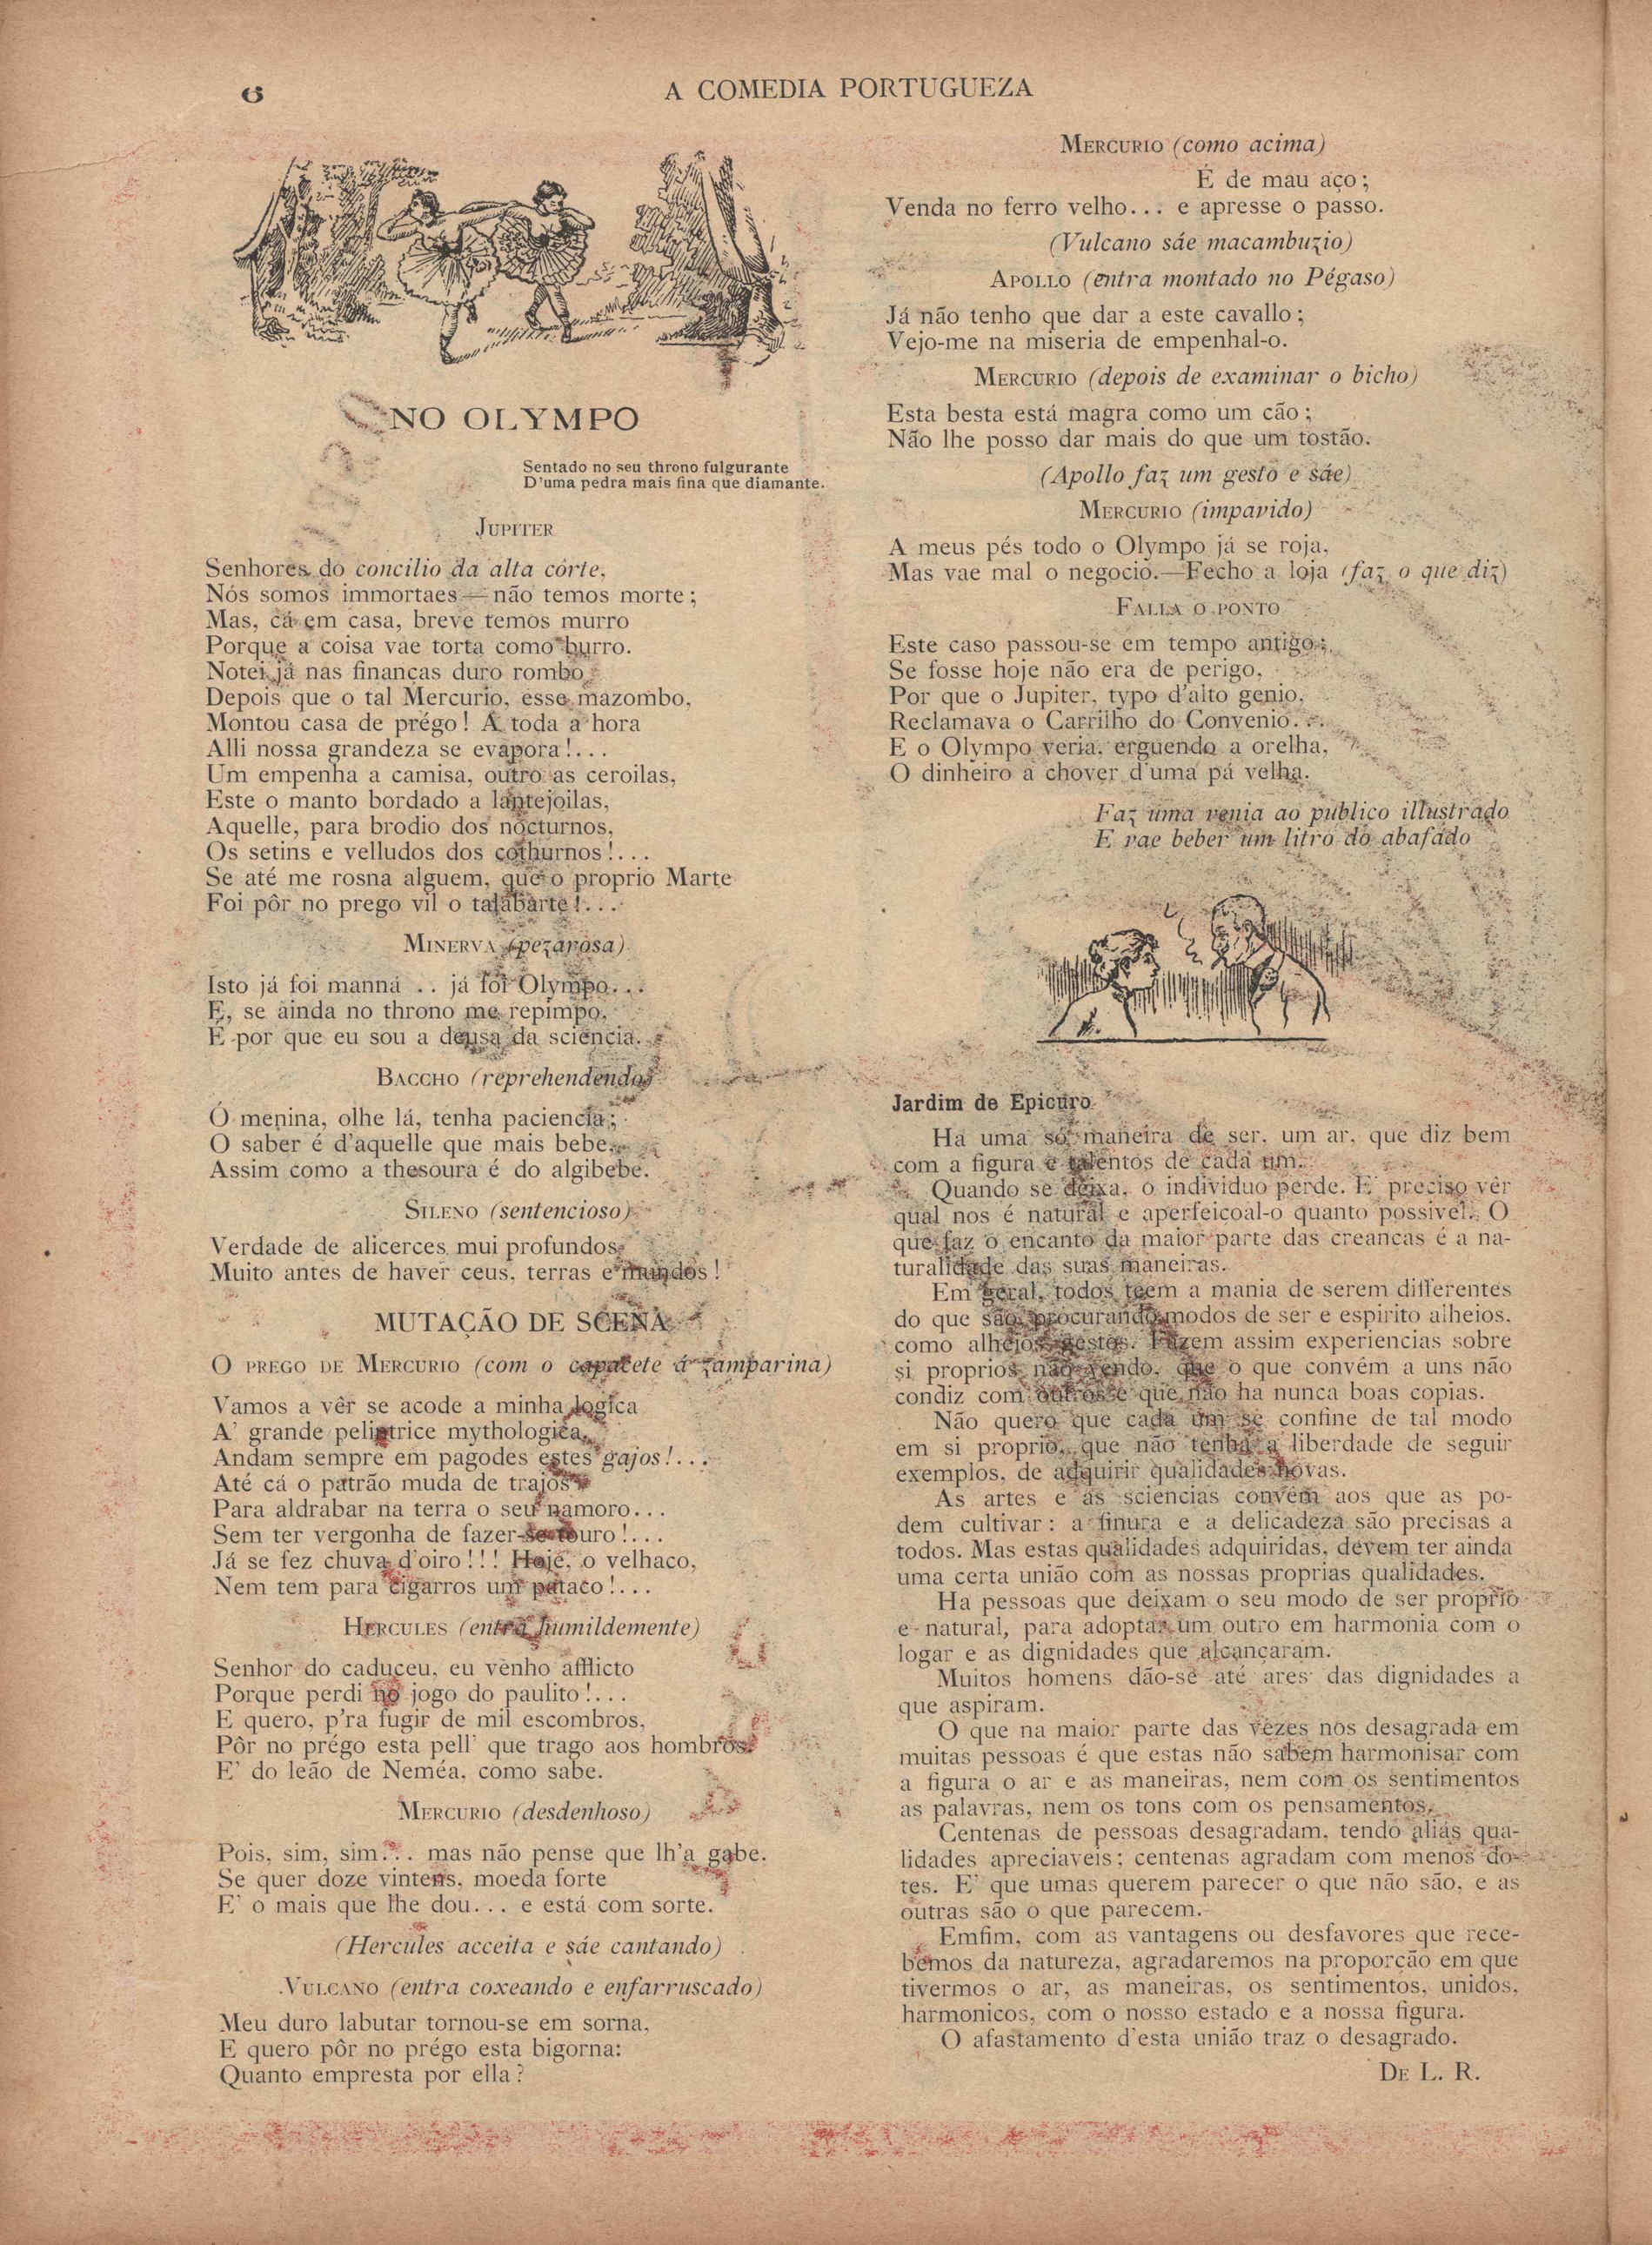 6
A COMEDIA PORTUGUEZA
NO OLYMPO
Sentado no seu throno fulgurante
D'uma pedra mais fina que diamante.
JUPITER
Senhores do concilio da alta côrte,
Nós somos immortaes—não temos morte;
Mas, cá em casa, breve temos murro
Porque a coisa vae torta como burro.
Notei já nas finanças duro rombo
Depois que o tal Mercurio, esse mazombo,
Montou casa de prégo! Á toda a hora
Alli nossa grandeza se evapora!...
Um empenha a camisa, outro as ceroilas,
Este o manto bordado a lantejoilas,
Aquelle, para brodio dos nocturnos,
Os setins e velludos dos cothurnos!...
Se até me rosna alguem, que o proprio Marte
Foi pôr no prego vil o talabarte!...
MINERVA (pezarosa)
Isto já foi manná .. já foi Olympo...
E, se ainda no throno me repimpo,
É por que eu sou a deusa da sciencia.
BACCHO (reprehendendo)
Ó menina, olhe lá, tenha paciencia;
O saber é d'aquelle que mais bebe,
Assim como a thesoura é do algibebe.
SILENO (sentencioso)
Verdade de alicerces mui profundos,
Muito antes de haver ceus, terras e mundos!
MUTAÇÃO DE SCENA
O PREGO DE MERCURIO (com o capacete á zamparina)
Vamos a vêr se acode a minha logica
A' grande pelintrice mythologica,
Andam sempre em pagodes estes gajos!...
Até cá o patrão muda de trajos
Para aldrabar na terra o seu namoro...
Sem ter vergonha de fazer-se touro!...
Já se fez chuva d'oiro!!! Hoje, o velhaco,
Nem tem para cigarros um pataco!...
HERCULES (entra humildemente)
Senhor do caduceu, eu venho afflicto
Porque perdi no jogo do paulito!...
E quero, p'ra fugir de mil escombros,
Pôr no prégo esta pell' que trago aos hombros.
E' do leão de Neméa, como sabe.
MERCURIO (desdenhoso)
Pois, sim, sim... mas não pense que lh'a gabe.
Se quer doze vintens, moeda forte
E' o mais que lhe dou... e está com sorte.
(Hercules acceita e sáe cantando)
VULCANO (entra coxeando e enfarruscado)
Meu duro labutar tornou-se em sorna,
E quero pôr no prégo esta bigorna:
Quanto empresta por ella?
MERCURIO (como acima)
É de mau aço;
Venda no ferro velho... e apresse o passo.
(Vulcano sáe macambuzio)
APOLLO (entra montado no Pégaso)
Já não tenho que dar a este cavallo;
Vejo-me na miseria de empenhal-o.
MERCURIO (depois de examinar o bicho)
Esta besta está magra como um cão;
Não lhe posso dar mais do que um tostão.
(Apollo faz um gesto e sáe)
MERCURIO (impavido)
A meus pés todo o Olympo já se roja,
Mas vae mal o negocio.—Fecho a loja (faz o que diz)
FALLA O PONTO
Este caso passou-se em tempo antigo;
Se fosse hoje não era de perigo,
Por que o Jupiter, typo d'alto genio,
Reclamava o Carrilho do Convenio...
E o Olympo veria, erguendo a orelha,
O dinheiro a chover d'uma pá velha.
Faz uma venia ao publico illustrado
E vae beber um litro do abafado
Jardim de Epicuro
Ha uma só maneira de ser, um ar, que diz bem
com a figura e talentos de cada um.
Quando se deixa, o individuo perde. E' preciso vêr
qual nos é natural e aperfeiçoal-o quanto possivel. O
que faz o encanto da maior parte das creanças é a na-
turalidade das suas maneiras.
Em geral, todos teem a mania de serem differentes
do que são, procurando modos de ser e espirito alheios,
como alheios gestos. Fazem assim experiencias sobre
si proprios, não vendo, que o que convém a uns não
condiz com outros e que não ha nunca boas copias.
Não quero que cada um se confine de tal modo
em si proprio, que não tenha a liberdade de seguir
exemplos, de adquirir qualidades novas.
As artes e as sciencias convém aos que as po-
dem cultivar: a finura e a delicadeza são precisas a
todos. Mas estas qualidades adquiridas, devem ter ainda
uma certa união com as nossas proprias qualidades.
Ha pessoas que deixam o seu modo de ser proprio
e natural, para adoptar um outro em harmonia com o
logar e as dignidades que alcançaram.
Muitos homens dão-se até ares das dignidades a
que aspiram.
O que na maior parte das vezes nos desagrada em
muitas pessoas é que estas não sabem harmonisar com
a figura o ar e as maneiras, nem com os sentimentos
as palavras, nem os tons com os pensamentos.
Centenas de pessoas desagradam, tendo aliás qua-
lidades apreciaveis; centenas agradam com menos do-
tes. E' que umas querem parecer o que não são, e as
outras são o que parecem.
Emfim, com as vantagens ou desfavores que rece-
bemos da natureza, agradaremos na proporção em que
tivermos o ar, as maneiras, os sentimentos, unidos,
harmonicos, com o nosso estado e a nossa figura.
O afastamento d'esta união traz o desagrado.
DE L. R.